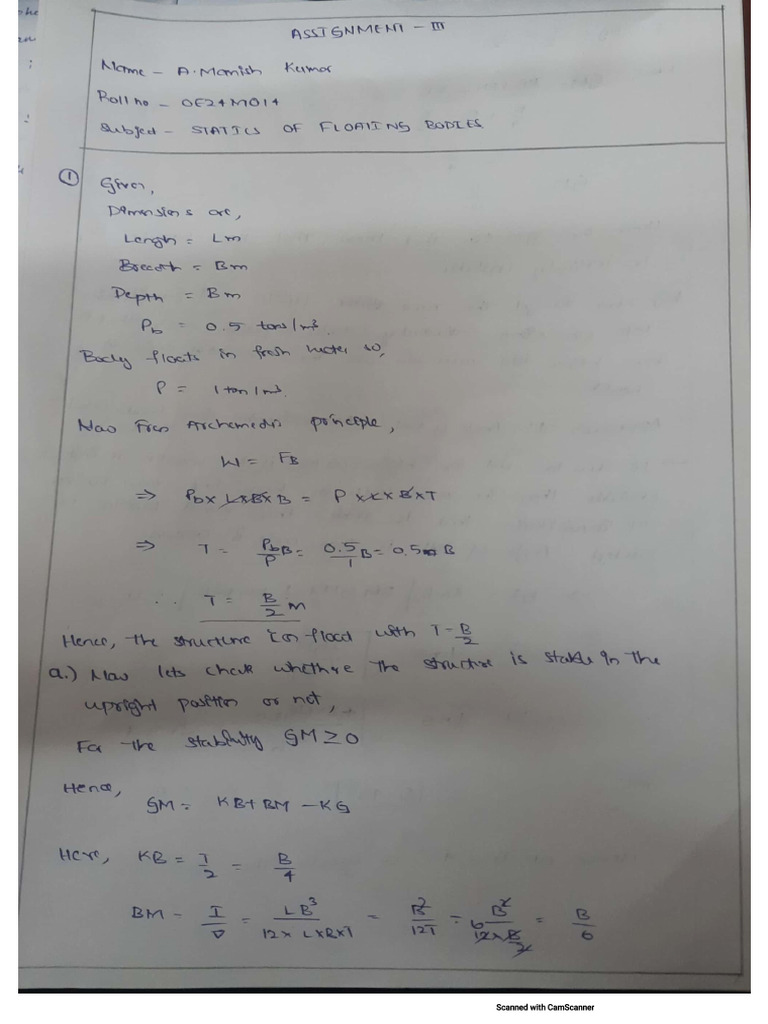 ASSIGNMENT - III
Name - A. Manish Kumar
Roll no - OE24M014
Subject - STATICS OF FLOATING BODIES
① Given,
Dimensions are,
Length = Lm
Breadth = Bm
Depth = Bm
ρb = 0.5 tons/m³.
Body floats in fresh water so,
ρ = 1 ton/m³.
Now From Archemedis principle,
W = FB
⇒ ρb x L x B x B = ρ x L x B x T
⇒ T = ρb/ρ B = 0.5/1 B = 0.5 B
∴ T = B/2 m
Hence, the structure can float with T = B/2
a.) Now lets check whethre the structure is stable in the
upright position or not,
For the stability GM ≥ 0
Hence,
GM = KB + BM - KG
Here, KB = T/2 = B/4
BM - I/∇ = LB³/12 x L x B x T = B²/12T = B²/12 x B/2 = B/6
Scanned with CamScanner